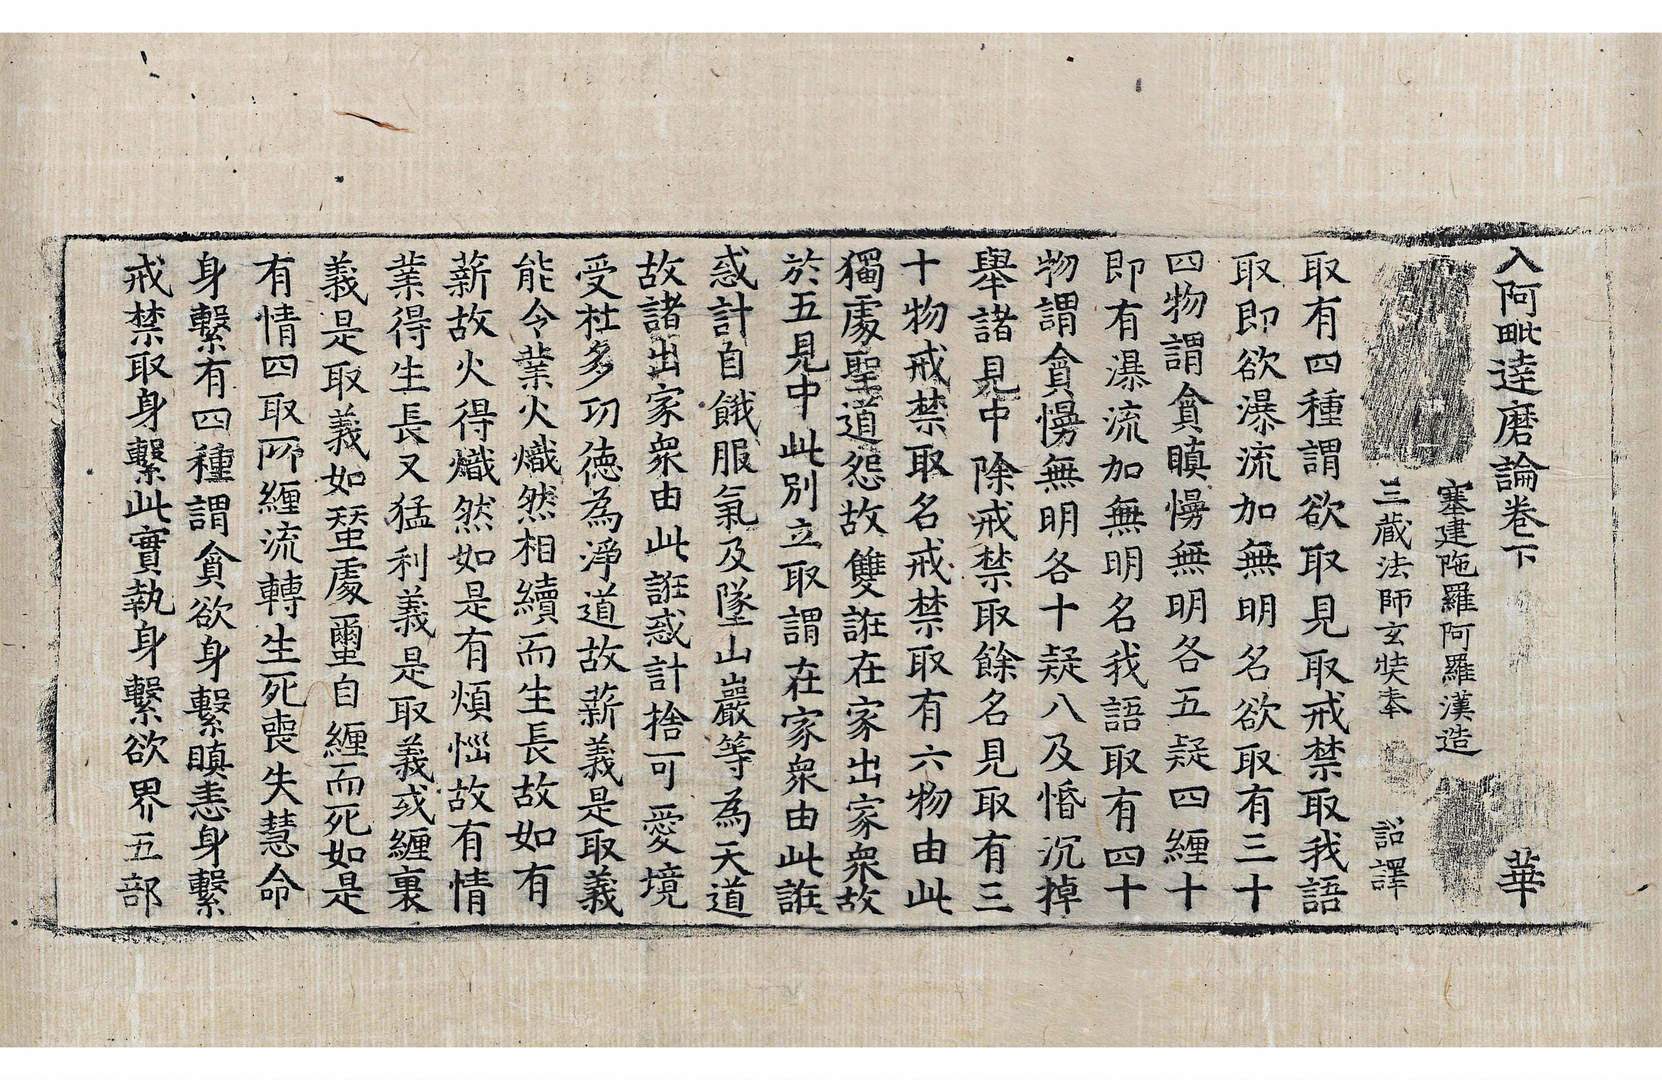 入阿毗達磨論卷下 華
塞建陁羅阿羅漢造
三藏法師玄奘奉 詔譯
取有四種謂欲取見取戒禁取我語
取即欲瀑流加無明名欲取有三十
四物謂貪瞋慢無明各五疑四纏十
即有瀑流加無明名我語取有四十
物謂貪慢無明各十疑八及惛沉掉
舉諸見中除戒禁取餘名見取有三
十物戒禁取名戒禁取有六物由此
獨處聖道怨故雙誑在家出家衆故
於五見中此別立取謂在家衆由此誑
惑計自餓服氣及墜山巖等為天道
故諸出家衆由此誑惑計捨可愛境
受杜多㓛德為淨道故薪義是取義
能令業火熾然相續而生長故如有
薪故火得熾然如是有煩惱故有情
業得生長又猛利義是取義或纏裹
義是取義如蝅處蠒自纏而死如是
有情四取所纏流轉生死喪失慧命
身繫有四種謂貪欲身繫瞋恚身繫
戒禁取身繫此實執身繫欲界五部